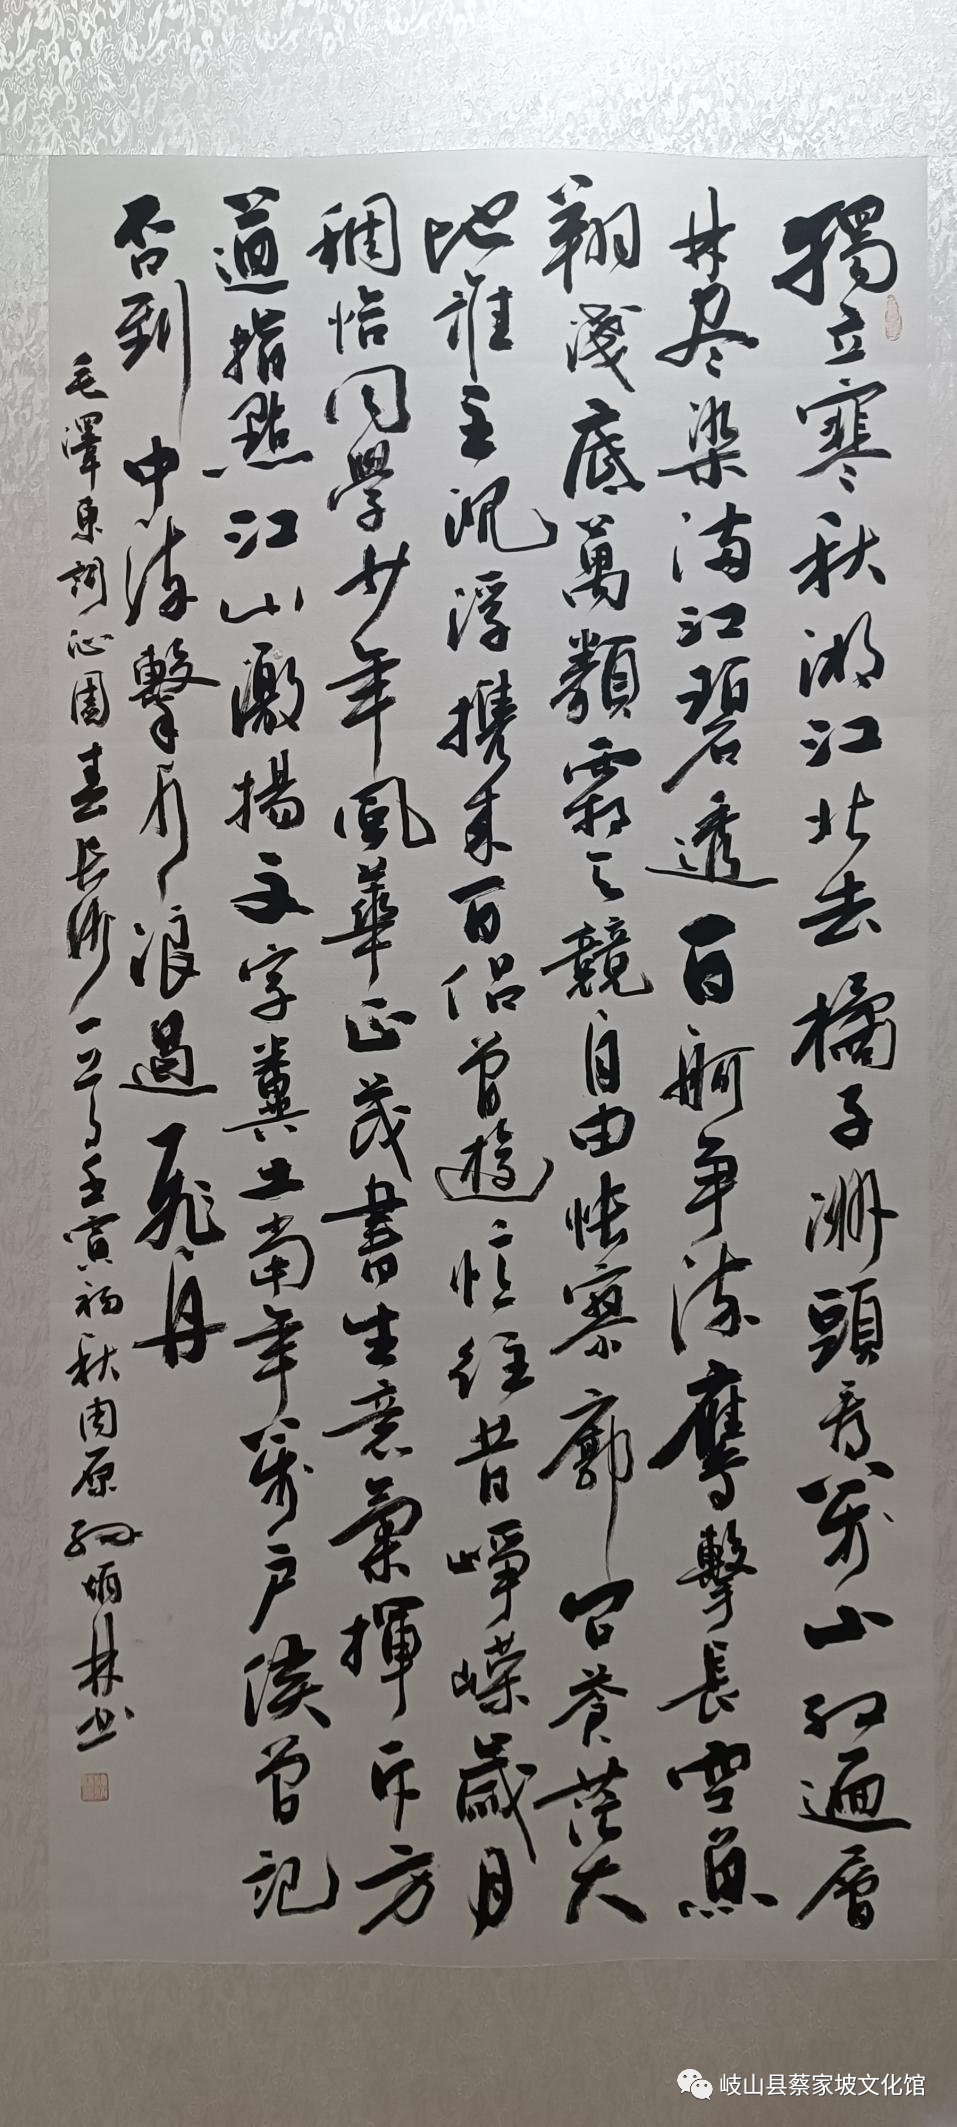 獨立寒秋湘江北去橘子洲頭看萬山红遍層
林尽染满江碧透百舸争流鷹擊長空魚
翔淺底萬類霜天競自由悵寥廓问蒼茫大
地谁主沉浮攜来百侣曾遊忆往昔崢嶸歲月
稠恰同學少年風華正茂書生意氣揮斥方
遒指點江山激揚文字糞土當年萬户侯曾记
否到中流擊水浪遏飛舟
毛澤東詞沁園春长沙一首壬寅初秋周原炳林书
岐山县蔡家坡文化馆